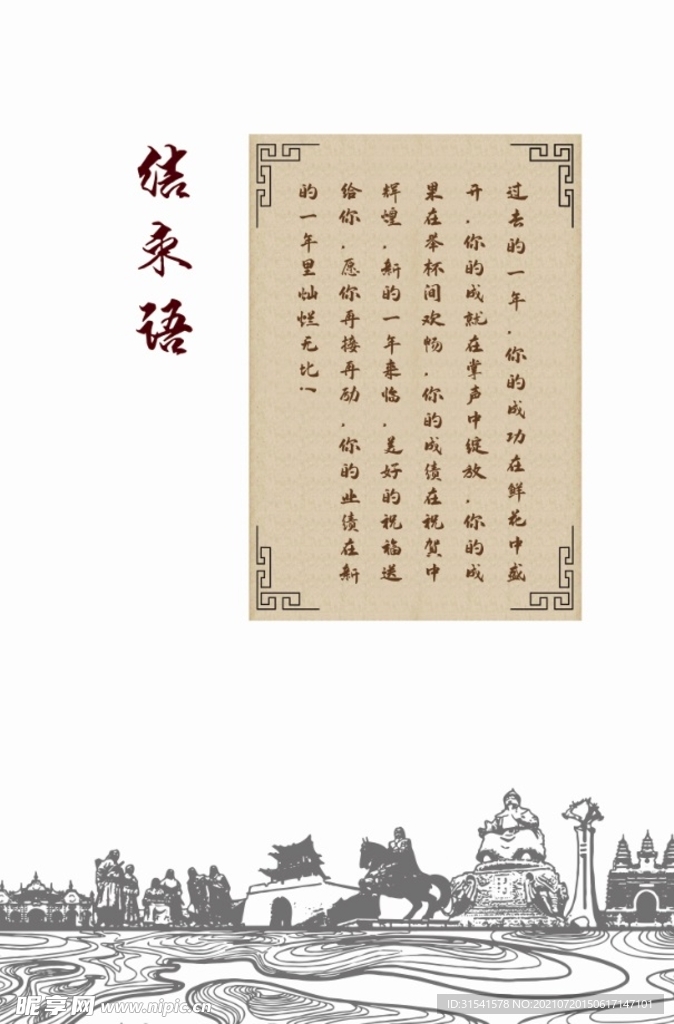 结束语
过去的一年，你的成功在鲜花中盛
开，你的成就在掌声中绽放，你的成
果在举杯间欢畅，你的成绩在祝贺中
辉煌，新的一年来临，美好的祝福送
给你，愿你再接再励，你的业绩在新
的一年里灿烂无比！
昵享网 www.nipic.cn
ID:31541578 NO:20210720150617147101